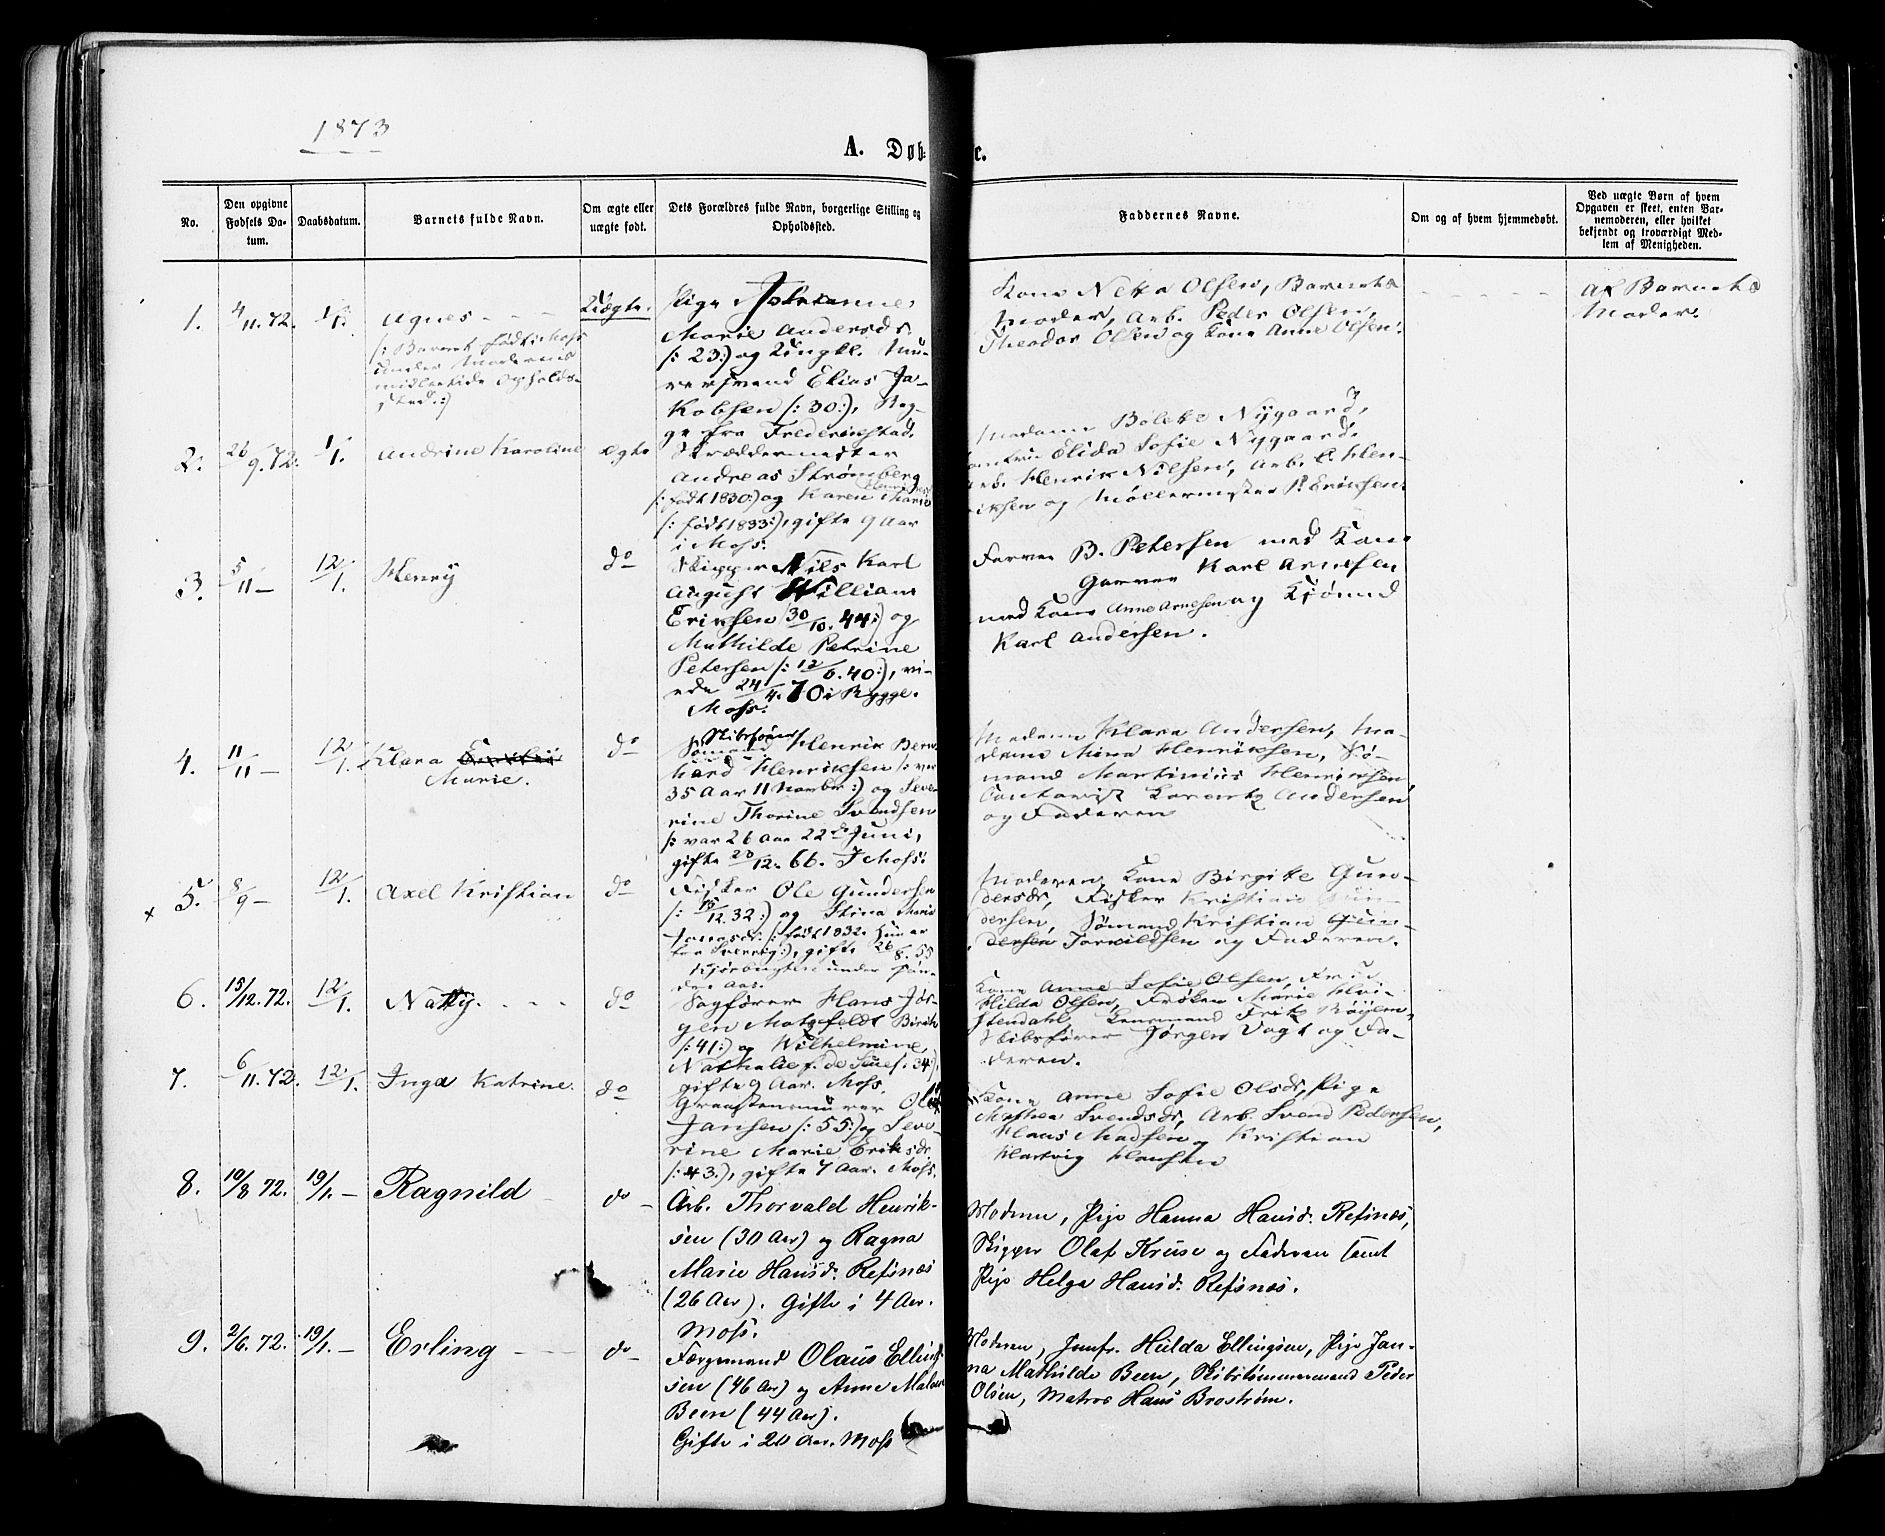 1873
A. Døbte.
No.
Den opgivne Fødsels Datum.
Daabsdatum.
Barnets fulde Navn.
Om ægte eller uægte født.
Dets Forældres fulde Navn, borgerlige Stilling og Opholdssted.
Faddernes Navne.
Om og af hvem hjemmedøbt.
Ved uægte Børn af hvem Opgaven er skeet, enten Barnemoderen, eller hvilket bekjendt og troværdigt Medlem af Menigheden.
1. 4/11.72. 1/1. Agnes - - -
/: Barnet født i Moss
under Moderens
midlertide Opholds-
sted.:)
Uægte.
Pige
Marie Andersdr.
/: 23:) og Ungkl. Mu-
rersvend Elias Ja-
kobsen /: 30:), Beg-
ge fra Frederikstad.
Kone Netta Olsen, Barnets
Moder, Arb. Peder Olsen,
Theodor Olsen og Kone Anne Olsen.
Af Barnets
Moder.
2. 26/9.72. 1/1. Andrine Karoline ægte
Skræddermester
Andreas Strømberg
/: født 1830:) og Karen Marie
/: født 1833:), gifte 9 Aar
i Moss.
Madame Bolette Nygaard,
Elida Sofie Nygaard,
Henrik Nilsen, Arb. Hen-
riksen og Møllermester P. Eriksen.
3. 5/11 - 12/1. Henry do
Skipper Nils Karl
August William
Eriksen 30/10.44:) og
Mathilde Petrine
Petersen /: 12/6.40:), vi-
ede 24/4.70 i Rygge.
Moss.
Farver B. Petersen med Kone
Garver Karl Arnesen
med Kone Anne Arnesen og
Karl Andersen.
4. 11/11 - 12/1. Klara
Marie.
do
Skibsfører
Sømand Henrik Bern-
hard Henriksen /: var
35 Aar 11 Novbr:) og Seve-
rine Thorine Svendsen
/: var 26 Aar 22de Juni,
gifte 28/12.66. I Moss.
Madame Klara Andersen, Ma-
dame Mina Henriksen, Sø-
mand Martinius Henriksen
Contorist Lorentz Andersen
og Faderen
x 5. 8/9 - 12/1. Axel Kristian do
Fisker Ole Gundersen
/: 15/12.32:) og Stina Marie
Jonasdr. /: født 1832. Hun er
fra Sverrig:), gifte 26/8.55
Moderen, Kone Birgite Gun-
dersdr, Fisker Kristian Gun-
dersen, Sømand Kristian Gun-
dersen Torkildsen og Faderen.
6. 15/12.72. 12/1. Natty. - - - do
Sagfører Hans Jør-
gen Motzfeldt Birch
/: 41:) og Wilhelmine
Nathalie f. de Seue /: 34:)
gifte 9 Aar. Moss.
Kone Anne Sofie Olsen, Fru
Hilda Olsen, Frøken Marie Hvi-
stendahl, Lensmand Fritz Røyem,
Skibsfører Jørgen Vogt og Fa-
deren.
7. 6/11.72. 12/1. Inga Katrine. do
Graastensmurer Ole
Jansen /: 55:) og Seve-
rine Marie Eriksdr.
/: 43.), gifte 7 Aar. Moss.
Kone Anne Sofie Olsdr, Pige
Mathea Svendsdr, Arb. Svend Pedersen,
Klaus Madsen og Kristian
Hartvig Hansen
8. 10/8 72. 19/1. - Ragnild do -
Arb. Thorvald Henrik-
sen (30 Aar) og Ragna
Marie Hansd. Refsnæs
(26 Aar). Gifte i 4 Aar.
Moss.
Moderen, Pige Hanna Hansd. Refsnæs,
Skipper Olaf Kruse og Faderen samt
Pige Helga Hansd. Refsnæs.
9. 2/6.72. 19/1. - Erling - - do -
Færgemand Olaus Elling-
sen (46 Aar) og Anne Malene
Been (44 Aar).
Gifte i 20 Aar. Moss
Moderen, Jomfr. Hulda Ellingsen, Pige Jan-
na Mathilde Been, Skibstømmermand Peder
Olsen, Matros Hans Brostrøm.